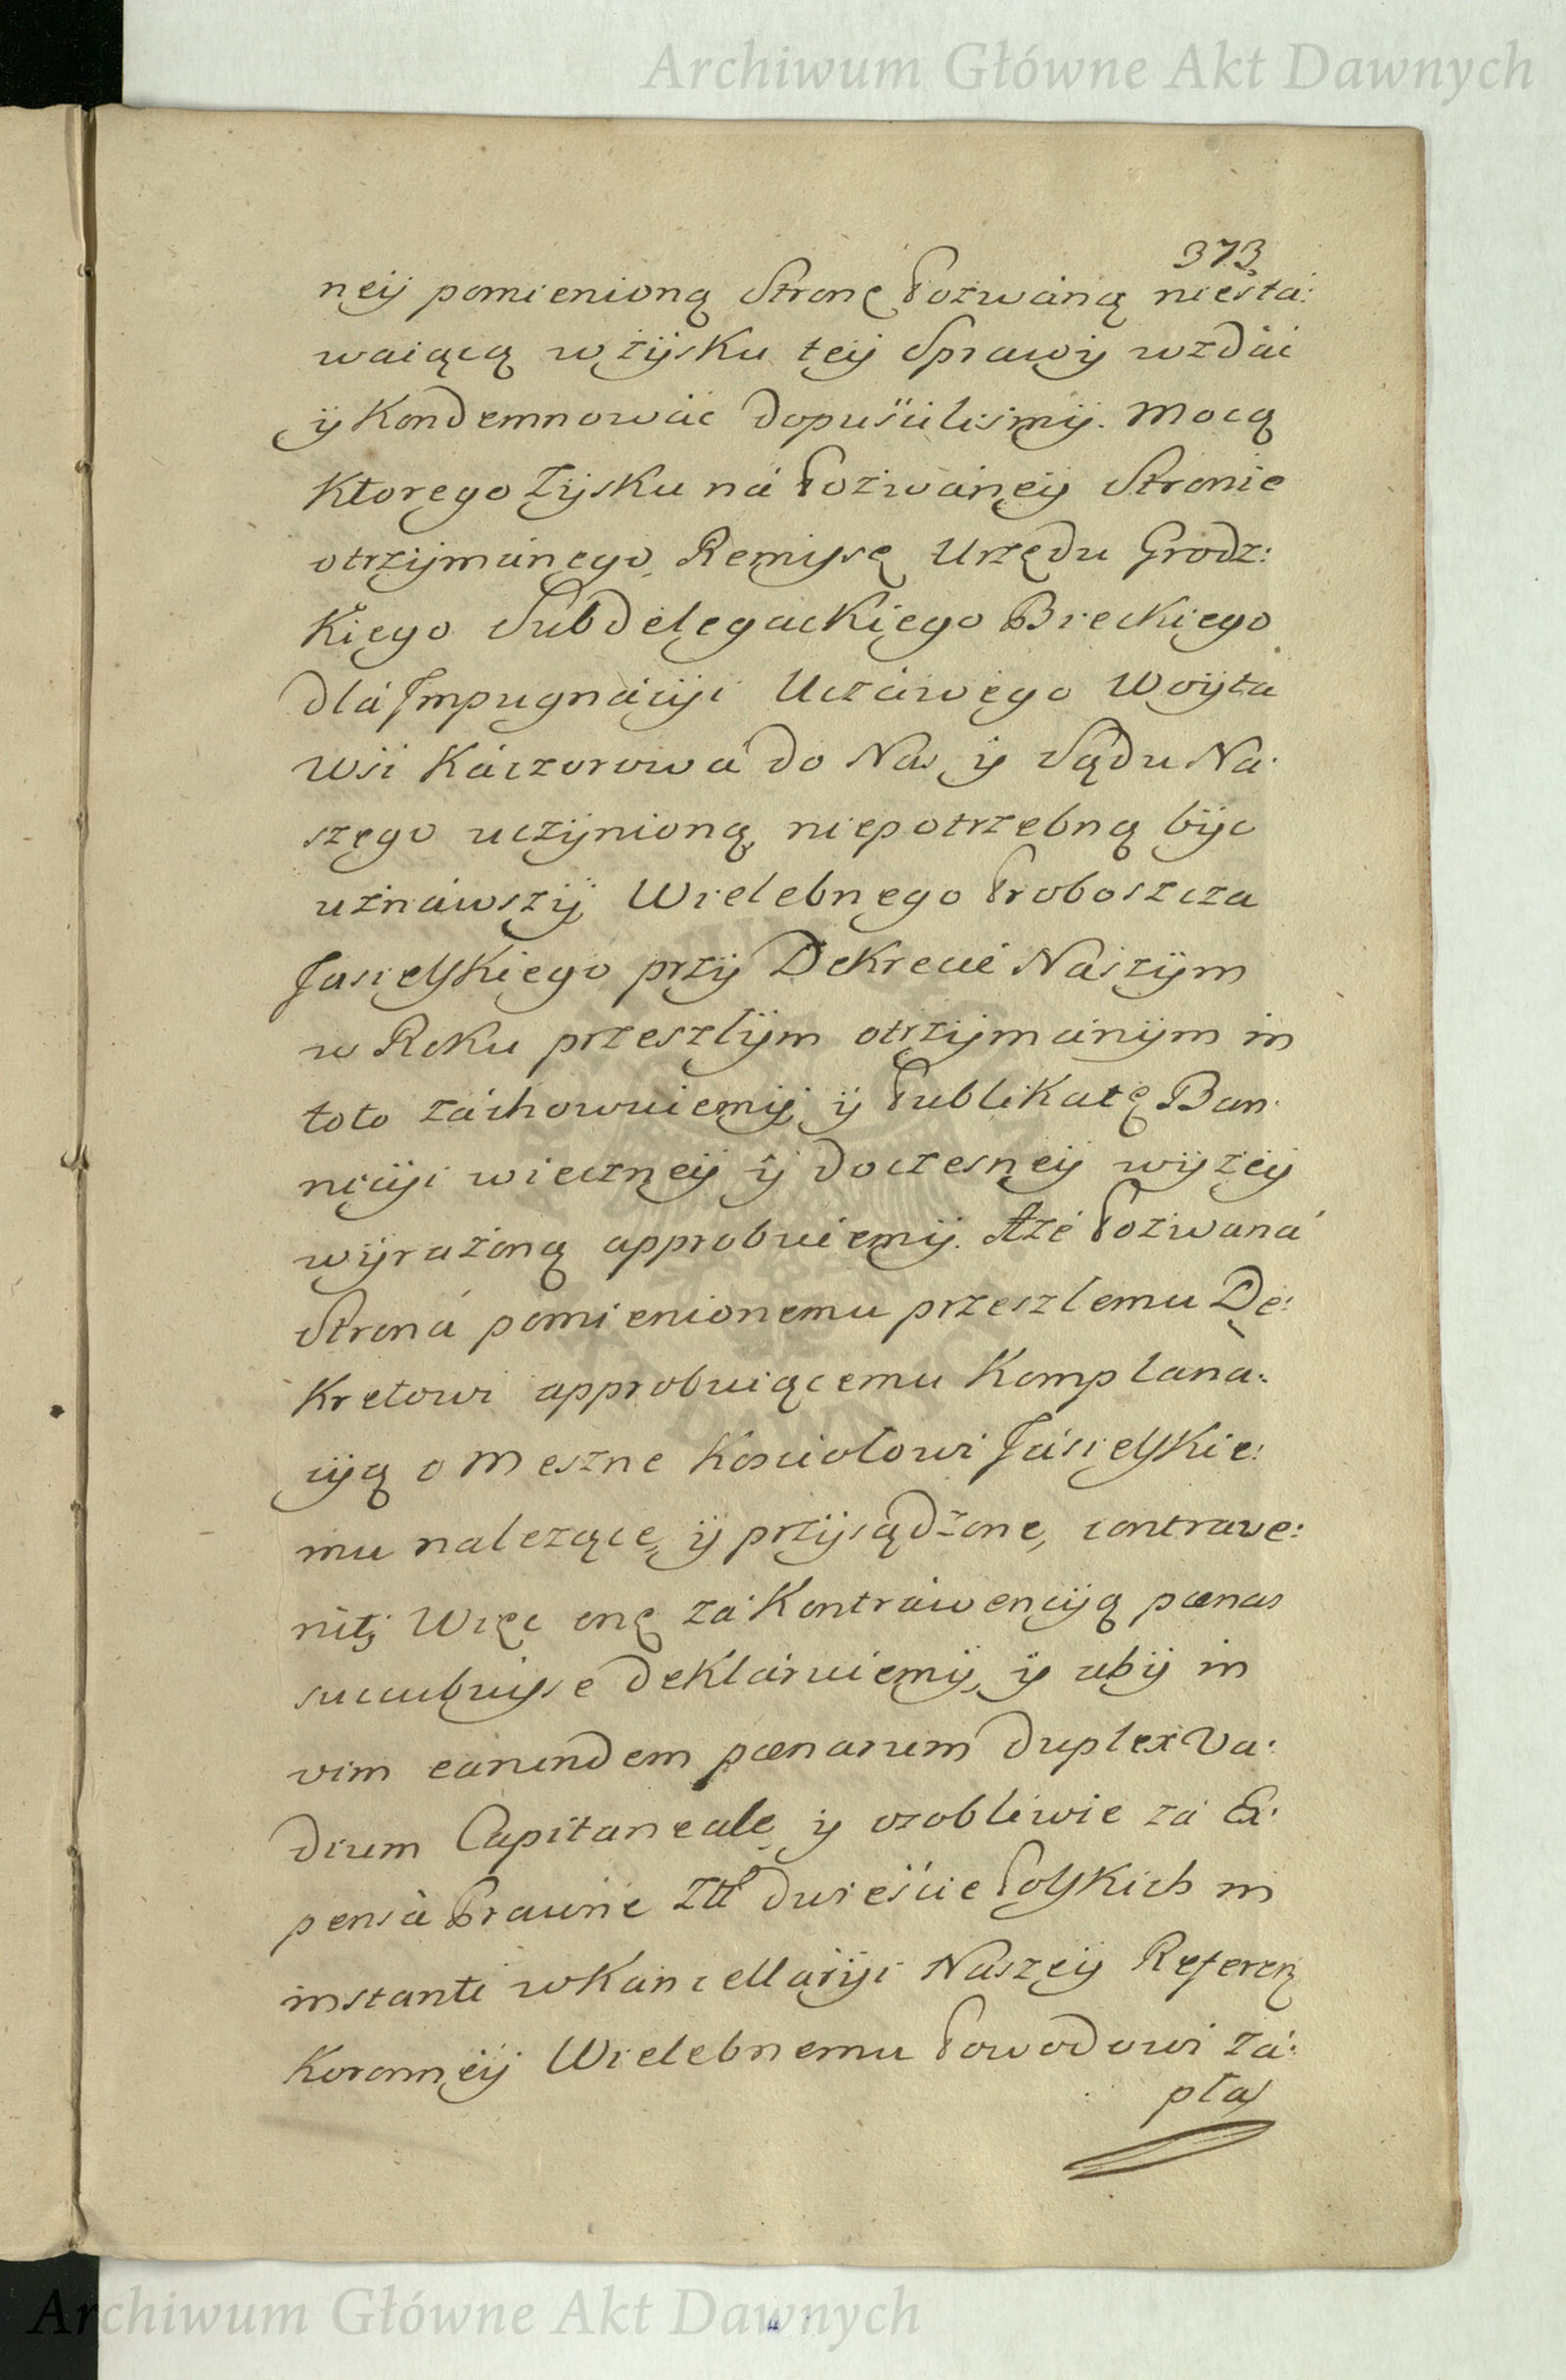 Archiwum Główne Akt Dawnych
373
ney pomienioną Stronę Pozwaną niesta:
waiącą w zysku tey Sprawy wzdać
y Kondemnować dopuściliśmy. Mocą
Ktorego zysku ná Pozwáney Stronie
otrzymánego, Remissę Urzędu Grodz:
Kiego Subdelegackiego Bieckiego
dlá Impugnácyi Uczciwego Woyta
Wsi Káczorowá do Nas y Sądu Na:
szego uczynioną, niepotrzebną byc
uznáwszy Wielebnego Proboszcza
Jasielskiego przy Dekrecie Nászym
w Roku przeszłym otrzymánym in
toto záchowuiemy, y Publikatę Ban:
nicyi wieczney y doczesney wyzey
wyrażoną approbuiemy. Aże Pozwaná
Stroná pomienionemu przeszłemu De:
Kretowi approbuiącemu Komplana:
cyą o Meszne Kościołowi Jásielskie:
mu nalezące, y przysądzone, contrave:
nit; Więc onę zá Kontráwencyą pœnas
succubuisse deKláruiemy, y aby in
vim earundem pœnarum duplex Va:
dium Capitaneale y osobliwie zá Ex:
pensá Prawne Złł dwieście Polskich in
instanti w Káncellaryi Nászey Referen
Koronney Wielebnemu Powodowi zá:
płać
Archiwum Główne Akt Dawnych